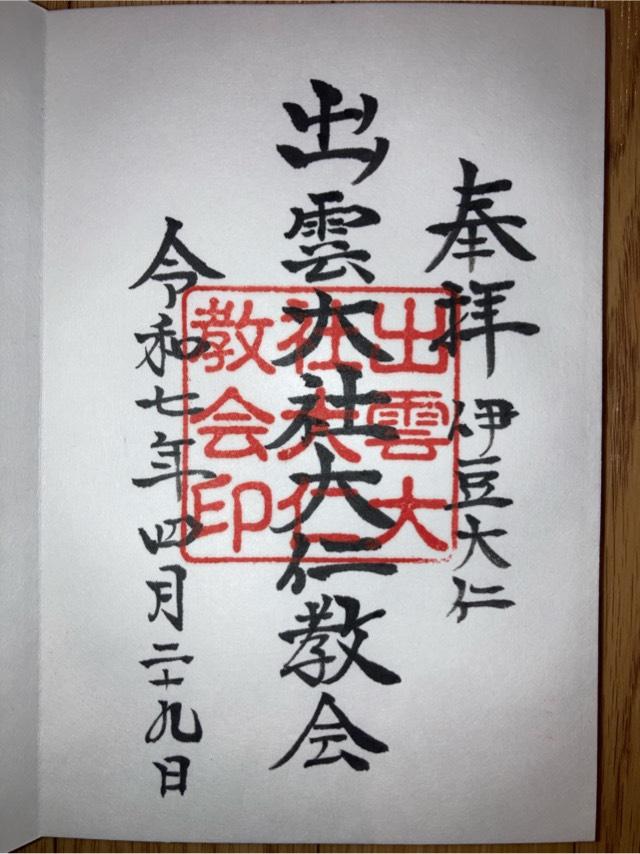 奉拝 伊豆大仁
出雲大社大仁教会
令和七年四月二十九日
出雲大
社大仁
教会印